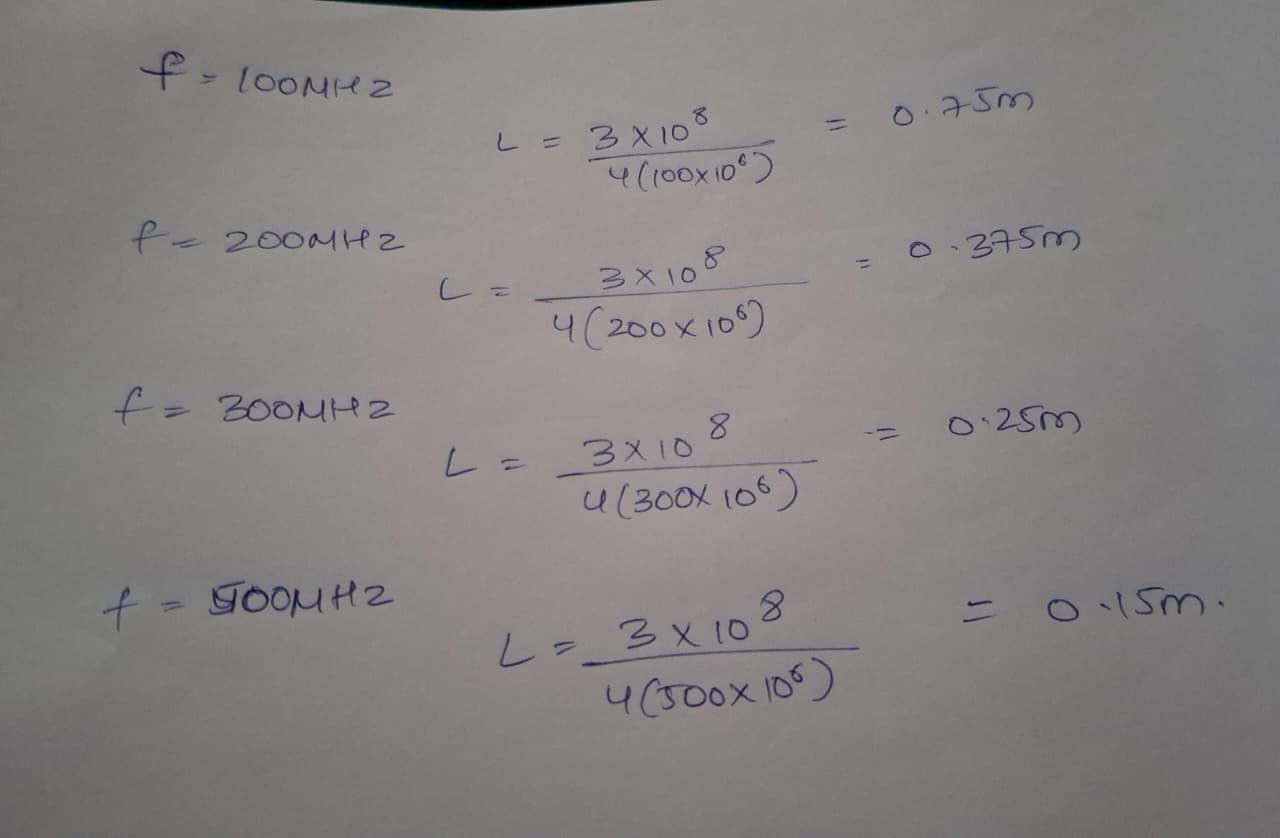 f = 100MHz
L = 3×10⁸ / 4(100×10⁶) = 0.75m
f = 200MHz
L = 3×10⁸ / 4(200×10⁶) = 0.375m
f = 300MHz
L = 3×10⁸ / 4(300×10⁶) = 0.25m
f = 500MHz
L = 3×10⁸ / 4(500×10⁶) = 0.15m.